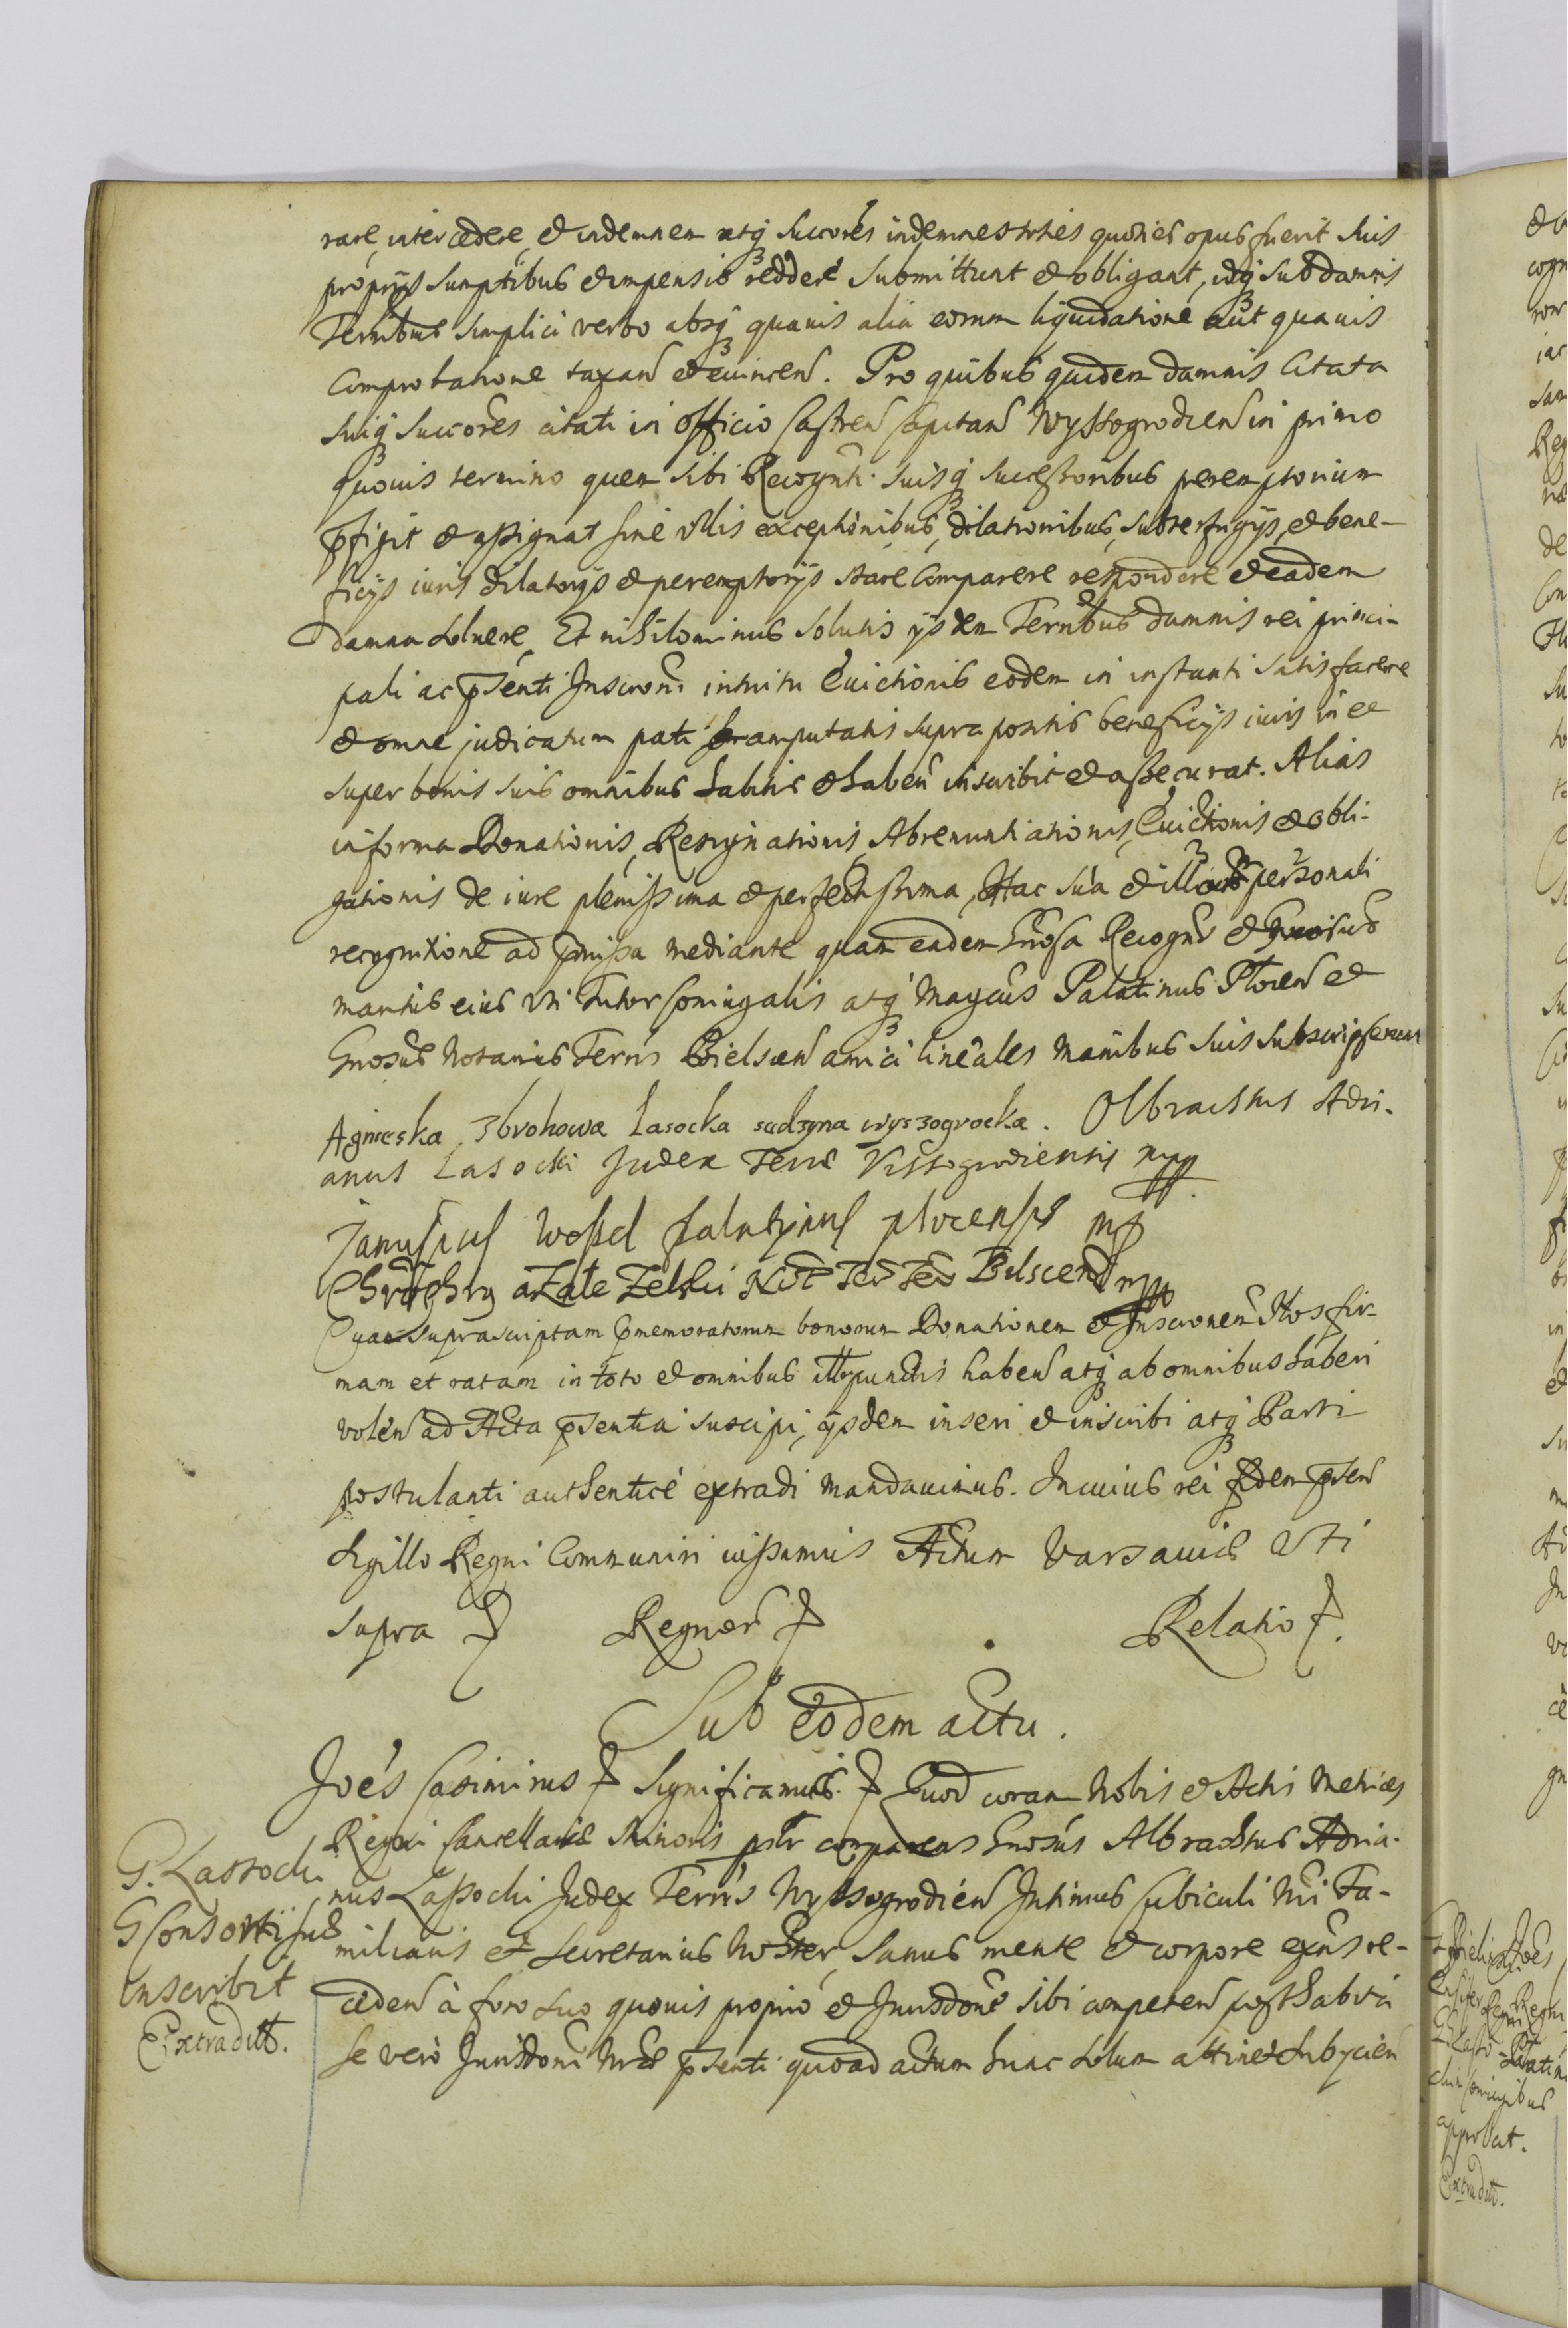 rare, intercedere, et indemnem atq₃ succores indemnes toties quoties opus fuerit suis
proprys sumptibus et impensis reddere submittunt et obligant, idq₃ sub damnis
Terribus simplici verbo absq₃ quauis alia eorum liquidatione aut quauis
comprobatione taxan et euincen. Pro quibus quidem damnis Citata
suiq₃ succores citati in officio Castren Capitan Wyssogrodien in primo
quouis termino quem sibi Recognti. suisq₃ successoribus peremptorium
pfigit et assignat sine vllis exceptionibus, dilationibus, subterfugys, et bene-
ficys iuris dilatorys et peremptorys stare Comparere respondere et eadem
damna soluere, Et nihilominus solutis ysdem Terribus damnis rei princi-
pali ac psenti Inscroni intuitu Euictionis eodem in instanti satisfacere
et omne judicatum pati amputatis supra positis beneficys iuris in et
super bonis suis omnibus habitis et haben inscribit et assecurat. Alias
in forma Donationis, Resignationis, Abrenuntiationis, Euictionis et obli-
gationis de iure plenissima et perfectissima, Hac sua et illorum personali
recognitione ad pmissa mediante quam eadem Gnosa Recogn et Gnosus
maritus eius vti Tutor Coniugalis atq₃ Magcus Palatinus Plocen et
Gnosus Notarius Terris Bielscen amici lineales manibus suis subscripserunt
Agnieska Zbrohowa Lasocka sedzyna wyszogrocka. Olbrachtus Adri-
anus Lasocki Judex Terre Vissogrodiensis mpp
Januscius Wessel palatynus plocensis mp
a Zale Zelski Not Ter Bilscen mpp
Quam suprascriptam pmemoratorum bonorum Donationem et Inscronem Nos fir-
mam et ratam in toto et omnibus punctis haben atq₃ ab omnibus haberi
volen ad Acta psentia suscipi, ysdem inseri et inscribi atq₃ Parti
postulanti authentice extradi mandauimus. In cuius rei fidem psen
sigillo Regni Communiri iussimus Actum Varsauiæ vti
supra Regner Relatio
Sub eodem actu.
Joes Casimirus Significamus. Quod coram Nobis et Actis Metrices
Regni Cancellariæ Minoris pslr comparens Gnosus Albrachtus Adria-
nus Lassocki Judex Terris Wyssogrodien Intimus Cubiculi Nri Fa-
miliaris et Secretarius Noster, Sanus mente et corpore exns re-
ceden à foro suo quouis proprio et Jurisdone sibi competen posthabita
se verò Jurisdoni Nræ psenti quoad actum hunc solum attinet subycien
G. Lassocki
G Consorti suæ
inscribit
Extradit.
approbat.
Extradit.